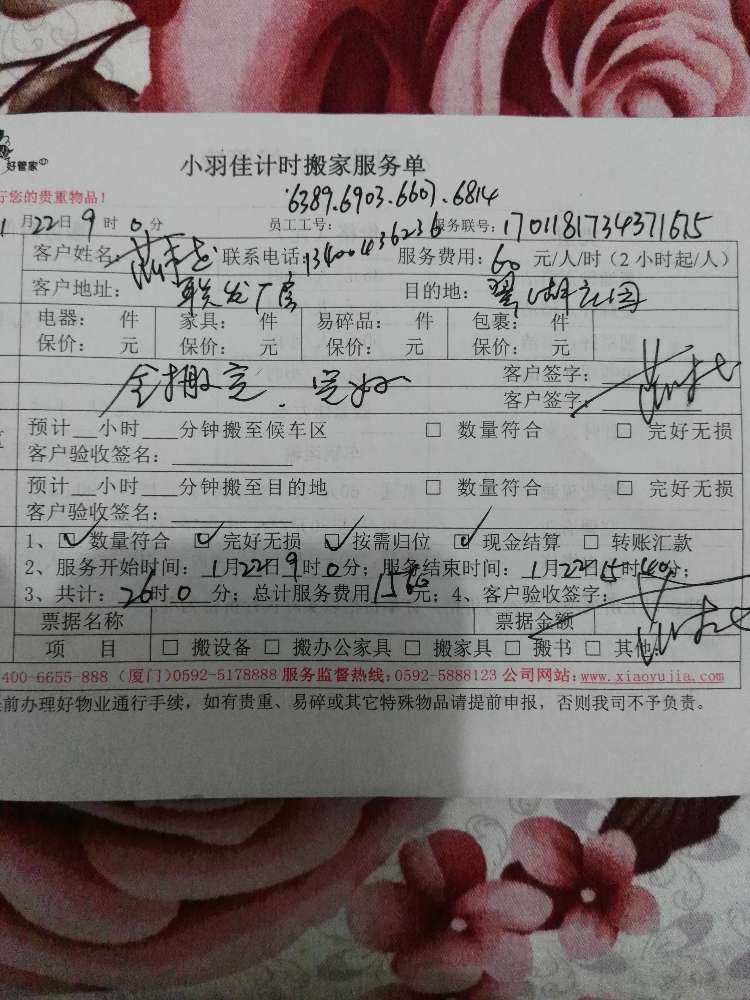 好管家
小羽佳计时搬家服务单
行您的贵重物品！
6389.6903.6607.6814
1月22日9时0分 员工工号： 服务联号：1701181734371675
客户姓名： 联系电话：13400436236 服务费用：60元/人/时（2小时起/人）
客户地址：联发厂房 目的地：
电器： 件 家具： 件 易碎品： 件 包裹： 件
保价： 元 保价： 元 保价： 元 保价： 元
全搬完.完好 客户签字：
客户签字：
预计__小时___分钟搬至候车区 □ 数量符合 □ 完好无损
客户验收签名：
预计__小时___分钟搬至目的地 □ 数量符合 □ 完好无损
客户验收签名：
1、☑数量符合 ☑完好无损 ☑按需归位 ☑现金结算 □ 转账汇款
2、服务开始时间：1月22日9时0分；服务结束时间：1月22日15时40分；
3、共计：26时0分；总计服务费用1560元；4、客户验收签字：
票据名称 票据金额
项 目 □ 搬设备 □ 搬办公家具 □ 搬家具 □ 搬书 □ 其他
400-6655-888（厦门）0592-5178888 服务监督热线：0592-5888123 公司网站：www.xiaoyujia.com
前办理好物业通行手续，如有贵重、易碎或其它特殊物品请提前申报，否则我司不予负责。